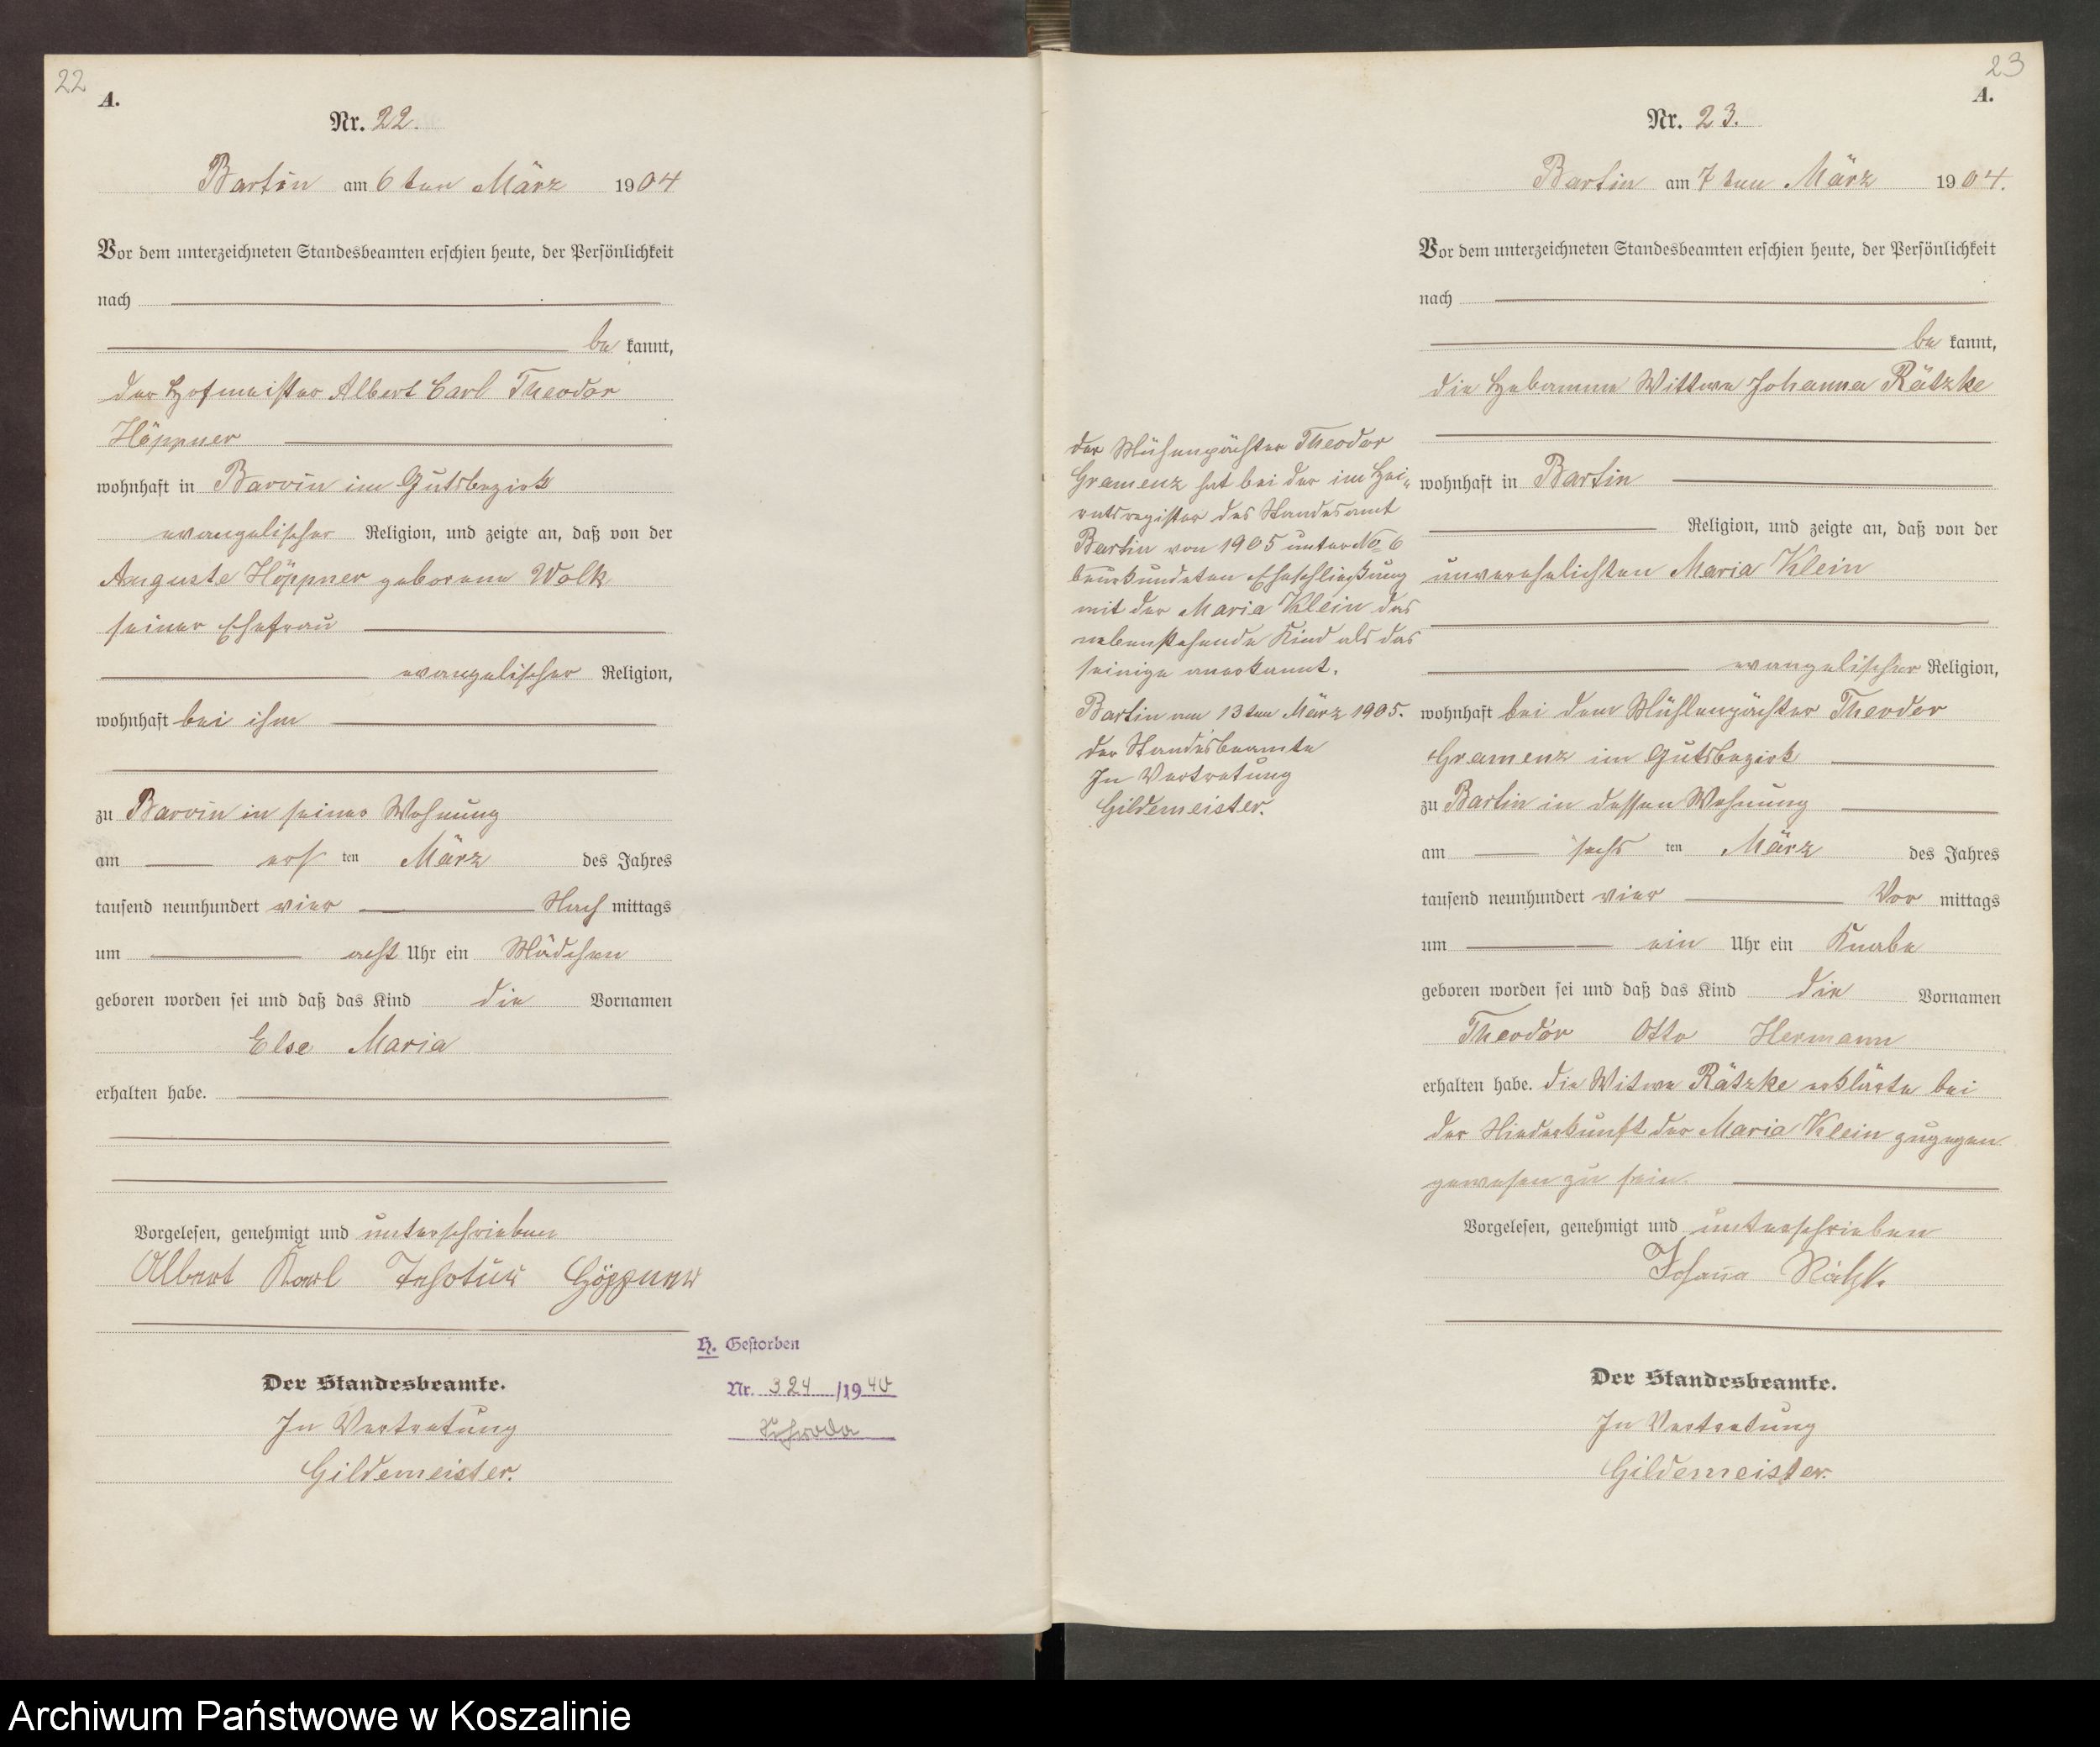 22
A.
Nr. 22.
Bartin am 6 ten März 1904
Vor dem unterzeichneten Standesbeamten erschien heute, der Persönlichkeit
nach
be kannt,
der Hofmeister Albert Carl Theodor
Höppner
wohnhaft in Barvin im Gutsbezirk
evangelischer Religion, und zeigte an, daß von der
Auguste Höppner geborene Wolk
seiner Ehefrau
evangelischer Religion,
wohnhaft bei ihm
zu Barvin in seiner Wohnung
am ersten März des Jahres
tausend neunhundert vier Nach mittags
um acht Uhr ein Mädchen
geboren worden sei und daß das Kind die Vornamen
Else Maria
erhalten habe.
Vorgelesen, genehmigt und unterschrieben
Albert Karl Höppner
H. Gestorben
Nr. 324/1940
Der Standesbeamte.
In Vertretung
Gildemeister.
23
A.
Nr. 23.
Bartin am 7 ten März 1904.
Vor dem unterzeichneten Standesbeamten erschien heute, der Persönlichkeit
nach
be kannt,
die Hebamme Wittwe Johanna Rätzke
wohnhaft in Bartin
Religion, und zeigte an, daß von der
unverehelichten Maria Klein
evangelischer Religion,
wohnhaft bei dem Mühlenpächter Theodor
Gramenz im Gutsbezirk
zu Bartin in dessen Wohnung
am sechs ten März des Jahres
tausend neunhundert vier Vor mittags
um ein Uhr ein Knabe
geboren worden sei und daß das Kind die Vornamen
Theodor Otto Hermann
erhalten habe. die Witwe Rätzke erklärte bei
der Niederkunft der Maria Klein zugegen
gewesen zu sein.
Vorgelesen, genehmigt und unterschrieben
Johanna Rätzke
Der Standesbeamte.
In Vertretung
Gildemeister.
der Mühenpächter Theodor
Gramenz hat bei der im Hei-
ratsregister des Standesamt
Bartin von 1905 unter No 6
beurkundeten Eheschließung
mit der Maria Klein das
nebenstehende Kind als das
seinige anerkannt.
Bartin am 13ten März 1905.
der Standesbeamte
In Vertretung
Gildemeister.
Archiwum Państwowe w Koszalinie